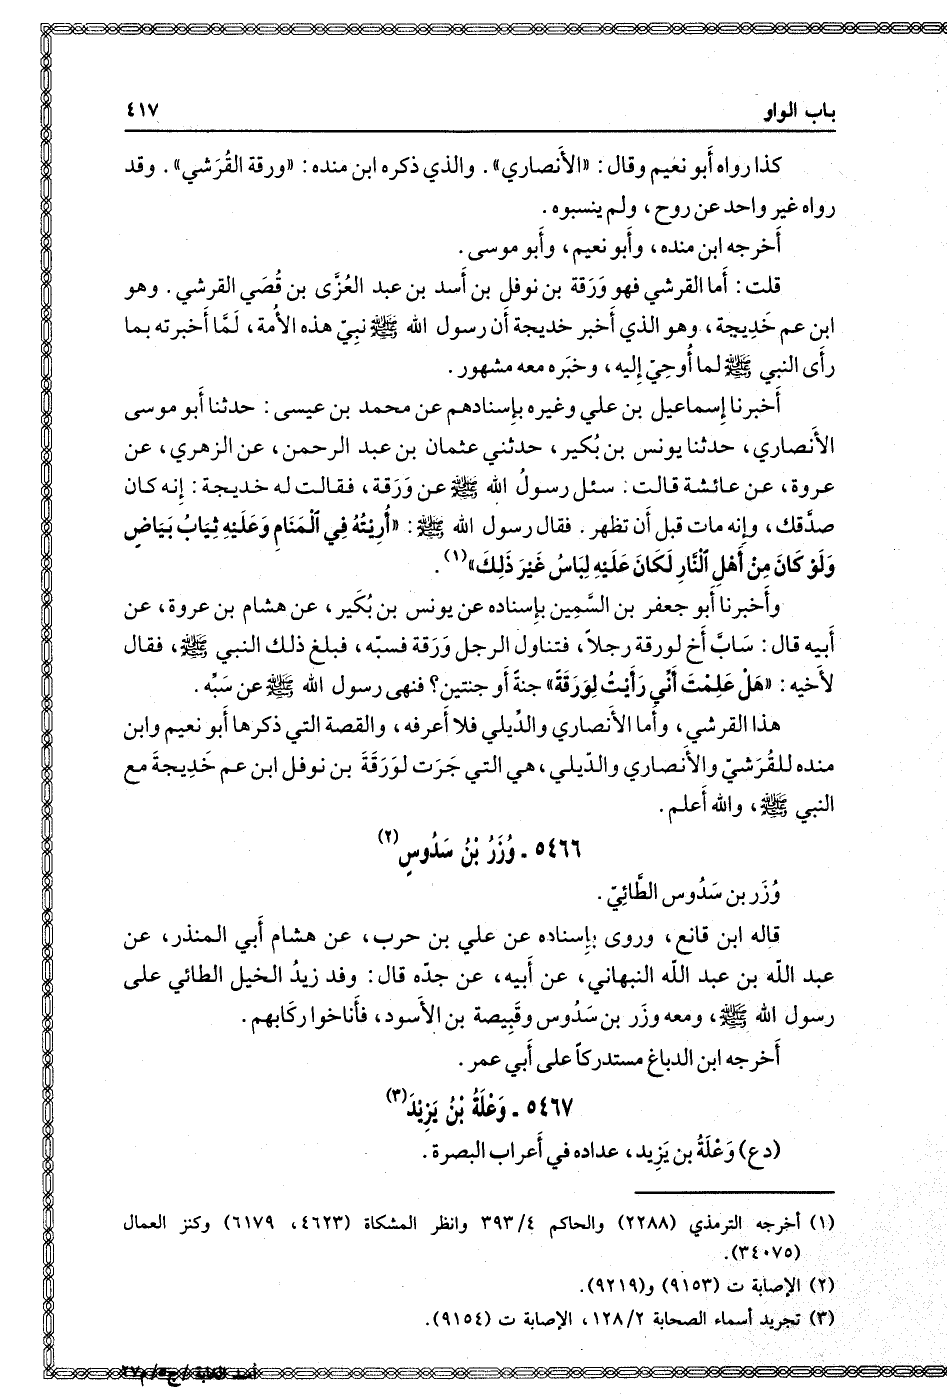 باب الواو ٤١٧
كذا رواه أَبو نعيم وقال: «الأَنصاري». والذي ذكره ابن منده: «ورقة القُرَشي». وقد
رواه غير واحد عن روح، ولم ينسبوه.
أَخرجه ابن منده، وأَبو نعيم، وأَبو موسى.
قلت: أَما القرشي فهو وَرَقة بن نوفل بن أَسد بن عبد العُزَّى بن قُصَي القرشي. وهو
ابن عم خَدِيجة، وهو الذي أَخبر خديجة أَن رسول الله ﷺ نبيّ هذه الأُمة، لَمَّا أَخبرته بما
رأَى النبي ﷺ لما أُوحِيّ إِليه، وخبَره معه مشهور.
أَخبرنا إِسماعيل بن علي وغيره بإِسنادهم عن محمد بن عيسى: حدثنا أَبو موسى
الأَنصاري، حدثنا يونس بن بُكَير، حدثني عثمان بن عبد الرحمن، عن الزهري، عن
عروة، عن عائشة قالت: سئل رسولُ الله ﷺ عن وَرَقة، فقالت له خديجة: إِنه كان
صدَّقك، وإِنه مات قبل أَن تظهر. فقال رسول الله ﷺ: «أُرِيْتُهُ فِي ٱلْمَنَامِ وَعَلَيْهِ ثِيَابُ بَيَاضٍ
وَلَوْ كَانَ مِنْ أَهْلِ ٱلنَّارِ لَكَانَ عَلَيْهِ لِبَاسُ غَيْرَ ذَلِكَ»(١).
وأَخبرنا أَبو جعفر بن السَّمِين بإِسناده عن يونس بن بُكَير، عن هشام بن عروة، عن
أَبيه قال: سَابَّ أَخ لورقة رجلاً، فتناول الرجل وَرَقة فسبّه، فبلغ ذلك النبي ﷺ، فقال
لأَخيه: «هَلْ عَلِمْتَ أَنِّي رَأَيْتُ لِوَرَقَةً» جنةً أَو جنتين؟ فنهى رسول الله ﷺ عن سَبِّه.
هذا القرشي، وأَما الأَنصاري والدِّيلي فلا أَعرفه، والقصة التي ذكرها أَبو نعيم وابن
منده للقُرَشيّ والأَنصاري والدّيلي، هي التي جَرَت لوَرَقَةَ بن نوفل ابن عم خَدِيجةَ مع
النبي ﷺ، والله أَعلم.
٥٤٦٦ ـ وُزَرُ بْنُ سَدُوسٍ(٢)
وُزَر بن سَدُوس الطَّائِيّ.
قاله ابن قانع، وروى بإِسناده عن علي بن حرب، عن هشام أَبي المنذر، عن
عبد اللّه بن عبد اللّه النبهاني، عن أَبيه، عن جدّه قال: وفد زيدُ الخيل الطائي على
رسول الله ﷺ، ومعه وزَر بن سَدُوس وقَبِيصة بن الأَسود، فأَناخوا ركَابهم.
أَخرجه ابن الدباغ مستدركاً على أَبي عمر.
٥٤٦٧ ـ وَعْلَةُ بْنُ يَزِيْدَ(٣)
(دع) وَعْلَةُ بن يَزِيد، عداده في أَعراب البصرة.
(١) أخرجه الترمذي (٢٢٨٨) والحاكم ٣٩٣/٤ وانظر المشكاة (٤٦٢٣، ٦١٧٩) وكنز العمال
(٣٤٠٧٥).
(٢) الإصابة ت (٩١٥٣) و(٩٢١٩).
(٣) تجريد أسماء الصحابة ١٢٨/٢، الإصابة ت (٩١٥٤).
أسد الغابة/ج٥/م٢٧